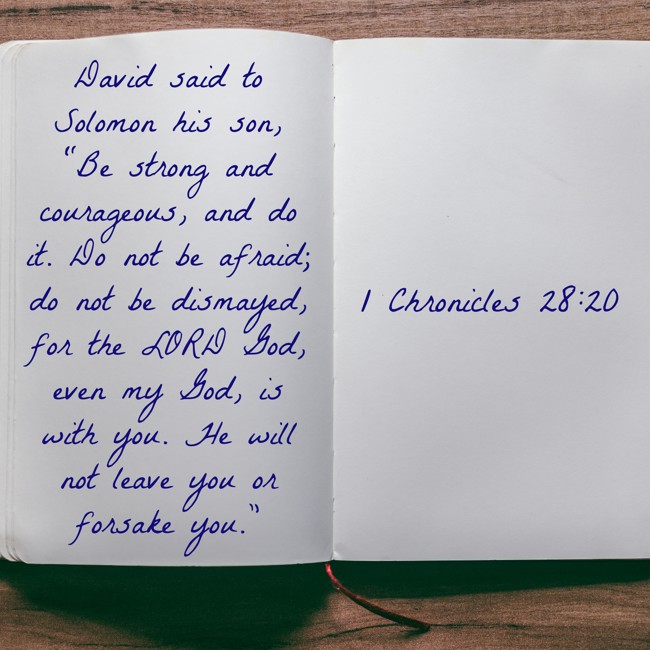 David said to
Solomon his son,
"Be strong and
courageous, and do
it. Do not be afraid;
do not be dismayed,
for the LORD God,
even my God, is
with you. He will
not leave you or
forsake you."
1 Chronicles 28:20